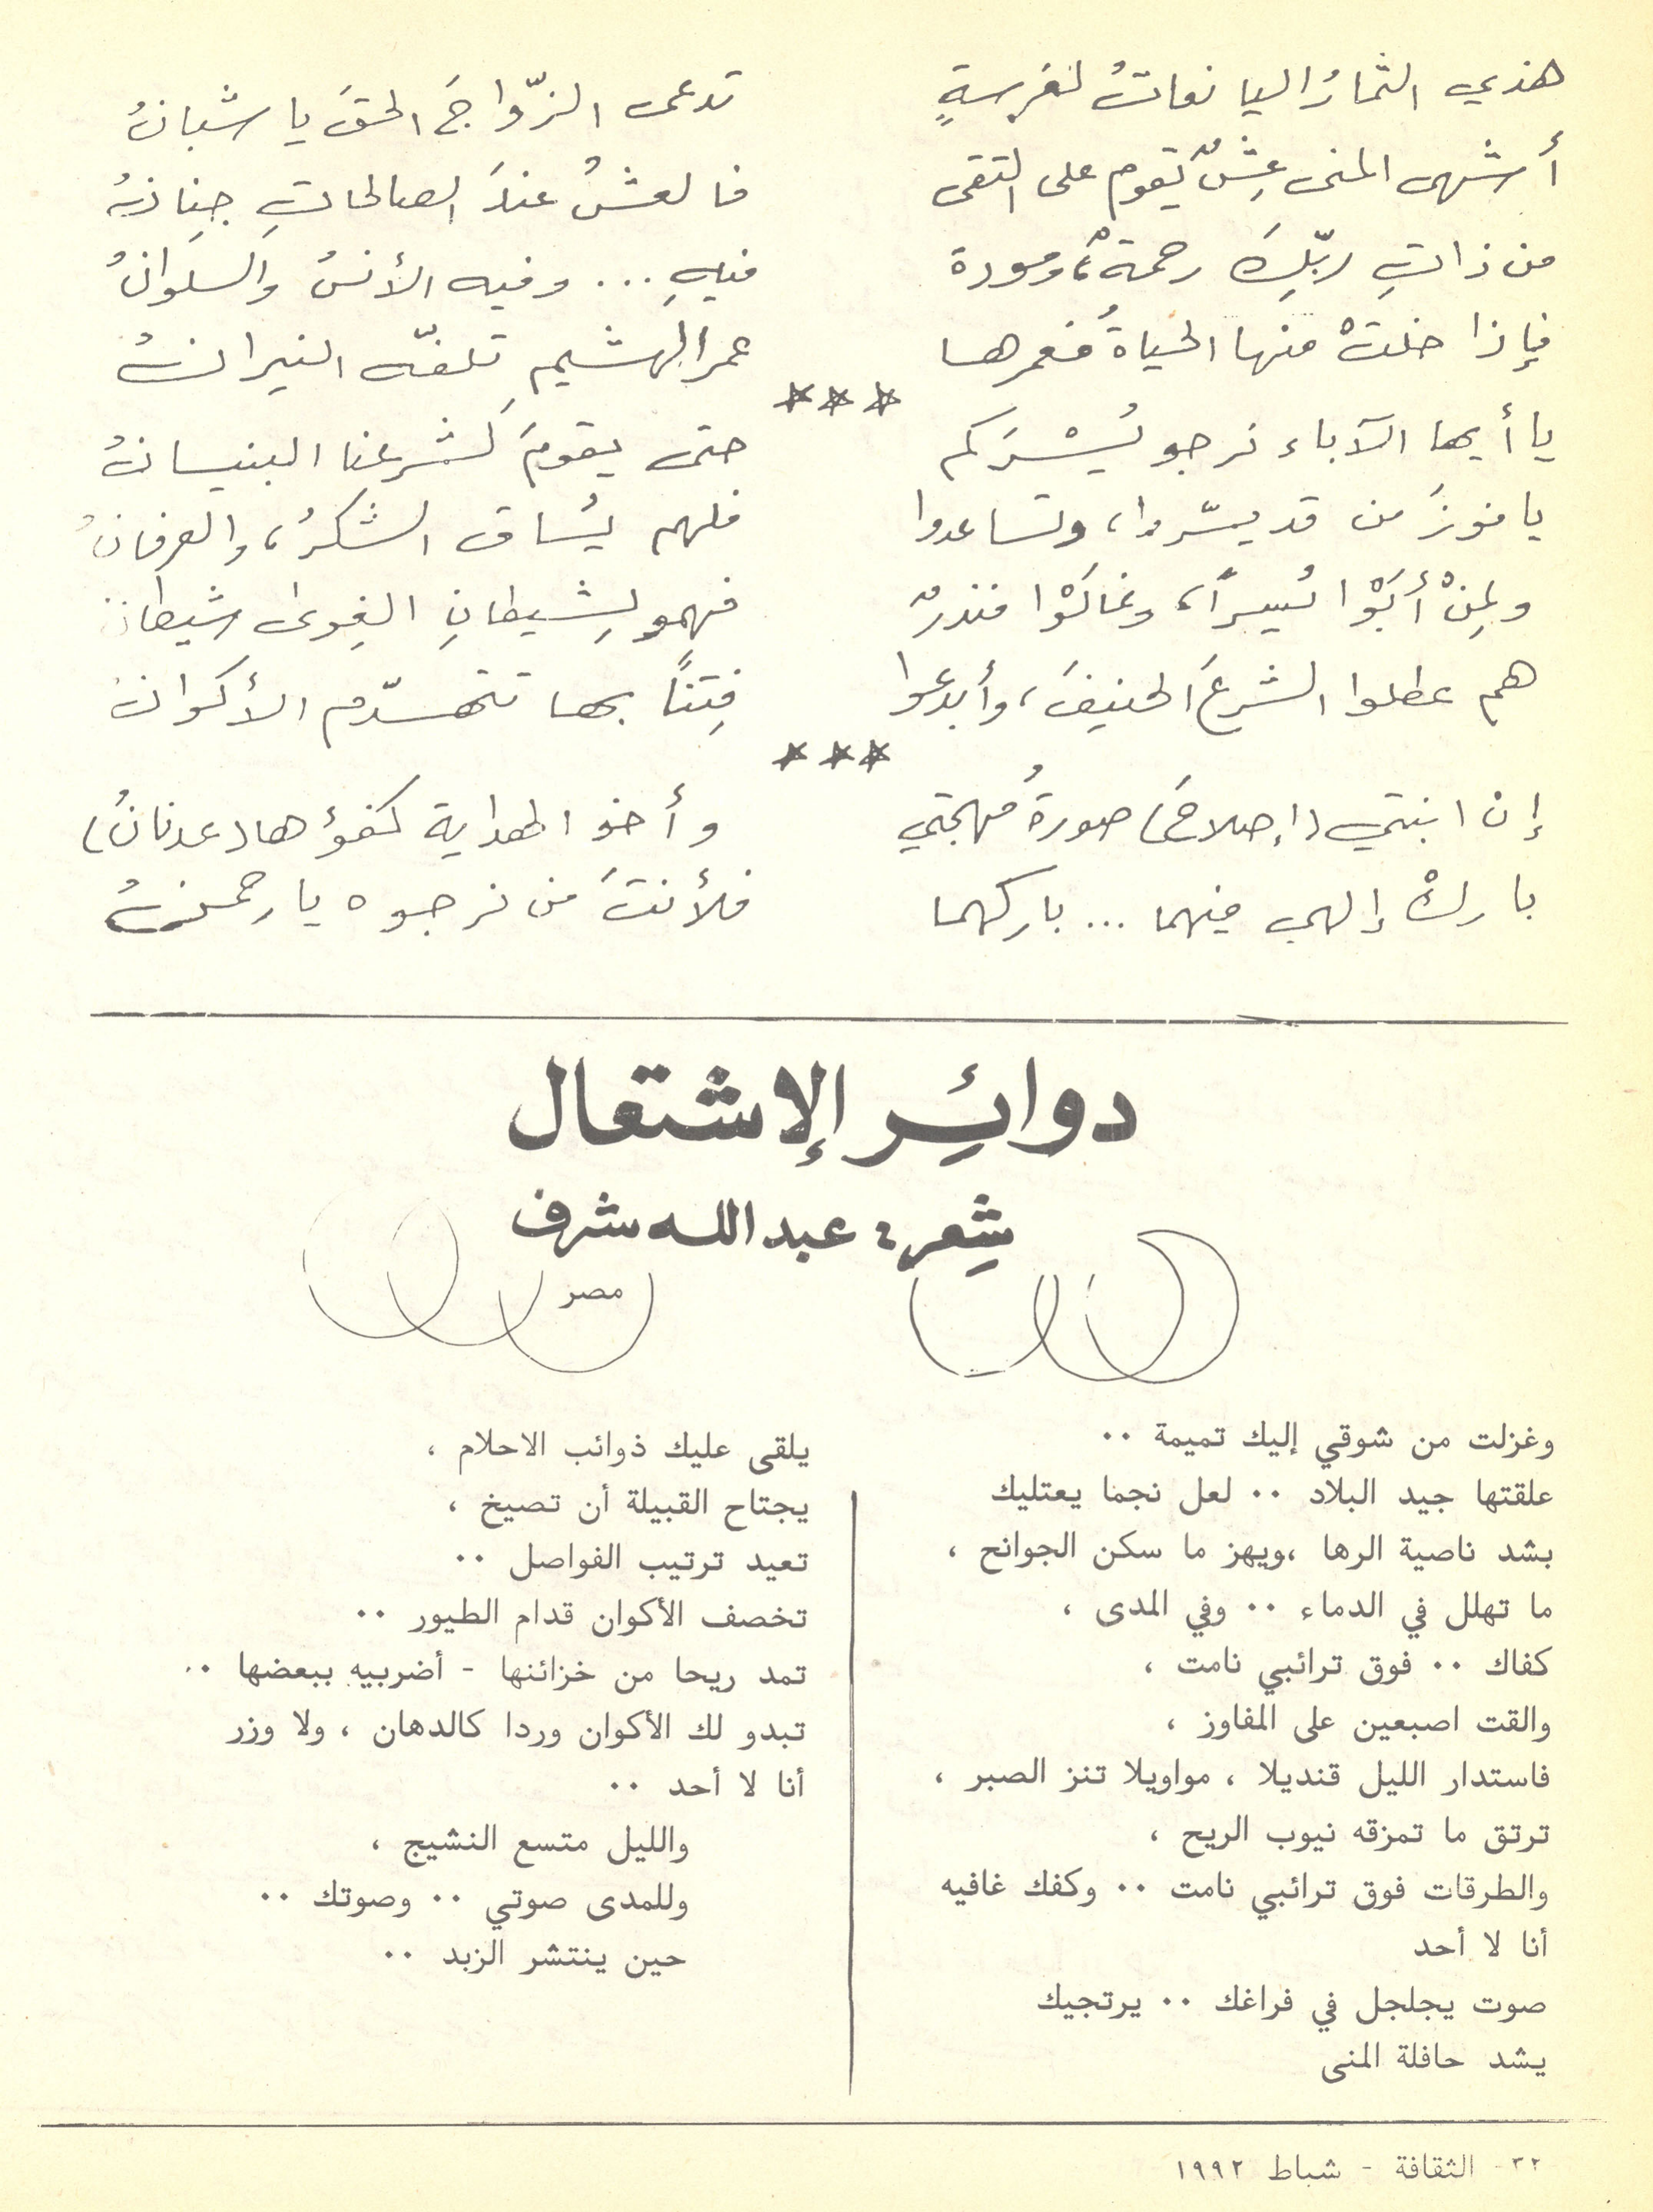 هذي الثمارُ اليانعاتُ لغرسةٍ تدعى الزّواجَ الحقَ يا شبانُ
أشهى المنى عِشٌ يقوم على التقى فالعشُ عندَ الصالحاتِ جِنانُ
من ذاتِ ربّكَ رحمةٌ، ومودة فيهِ ... وفيه الأنسُ والسلوانُ
فإذا خلتْ منها الحياةُ فعمرها عمر الهشيمِ تلفّه النيرانُ
***
يا أيها الآباء نرجو يُسْرَكم حتى يقومَ لشرعِنا البنيانُ
يا فوزَ من قد يسّروا، وتساعدوا فلهم يُساق الشكرُ، والعرفانُ
ولمِنْ أبَوْا يُسراً، وغالَوْا منذرٌ فهمو لِشيطانِ الغِوى شيطانُ
هم عطلوا الشرعَ الحنيفَ، وأبدعوا فِتنًا بها تتهدّم الأكوانُ
***
إن ابنتي (إصلاحَ) صورةُ مهجتي وأخو الهداية كفؤها (عدنانُ)
باركْ إلهي فيهما ... باركهما فلأنتَ من نرجوه يا رحمنُ
دوائر الإشتعال
شِعر: عبد الله شرف
مصر
وغزلت من شوقي إليك تميمة ..
علقتها جيد البلاد .. لعل نجما يعتليك
بشد ناصية الرها ،ويهز ما سكن الجوانح ،
ما تهلل في الدماء .. وفي المدى ،
كفاك .. فوق ترائبي نامت ،
والقت اصبعين على المفاوز ،
فاستدار الليل قنديلا ، مواويلا تنز الصبر ،
ترتق ما تمزقه نيوب الريح ،
والطرقات فوق ترائبي نامت .. وكفك غافيه
أنا لا أحد
صوت يجلجل في فراغك .. يرتجيك
يشد حافلة المنى
يلقى عليك ذوائب الاحلام ،
يجتاح القبيلة أن تصيخ ،
تعيد ترتيب الفواصل ..
تخصف الأكوان قدام الطيور ..
تمد ريحا من خزائنها - أضربيه ببعضها ..
تبدو لك الأكوان وردا كالدهان ، ولا وزر
أنا لا أحد ..
والليل متسع النشيج ،
وللمدى صوتي .. وصوتك ..
حين ينتشر الزبد ..
٣٢ - الثقافة - شباط ١٩٩٢